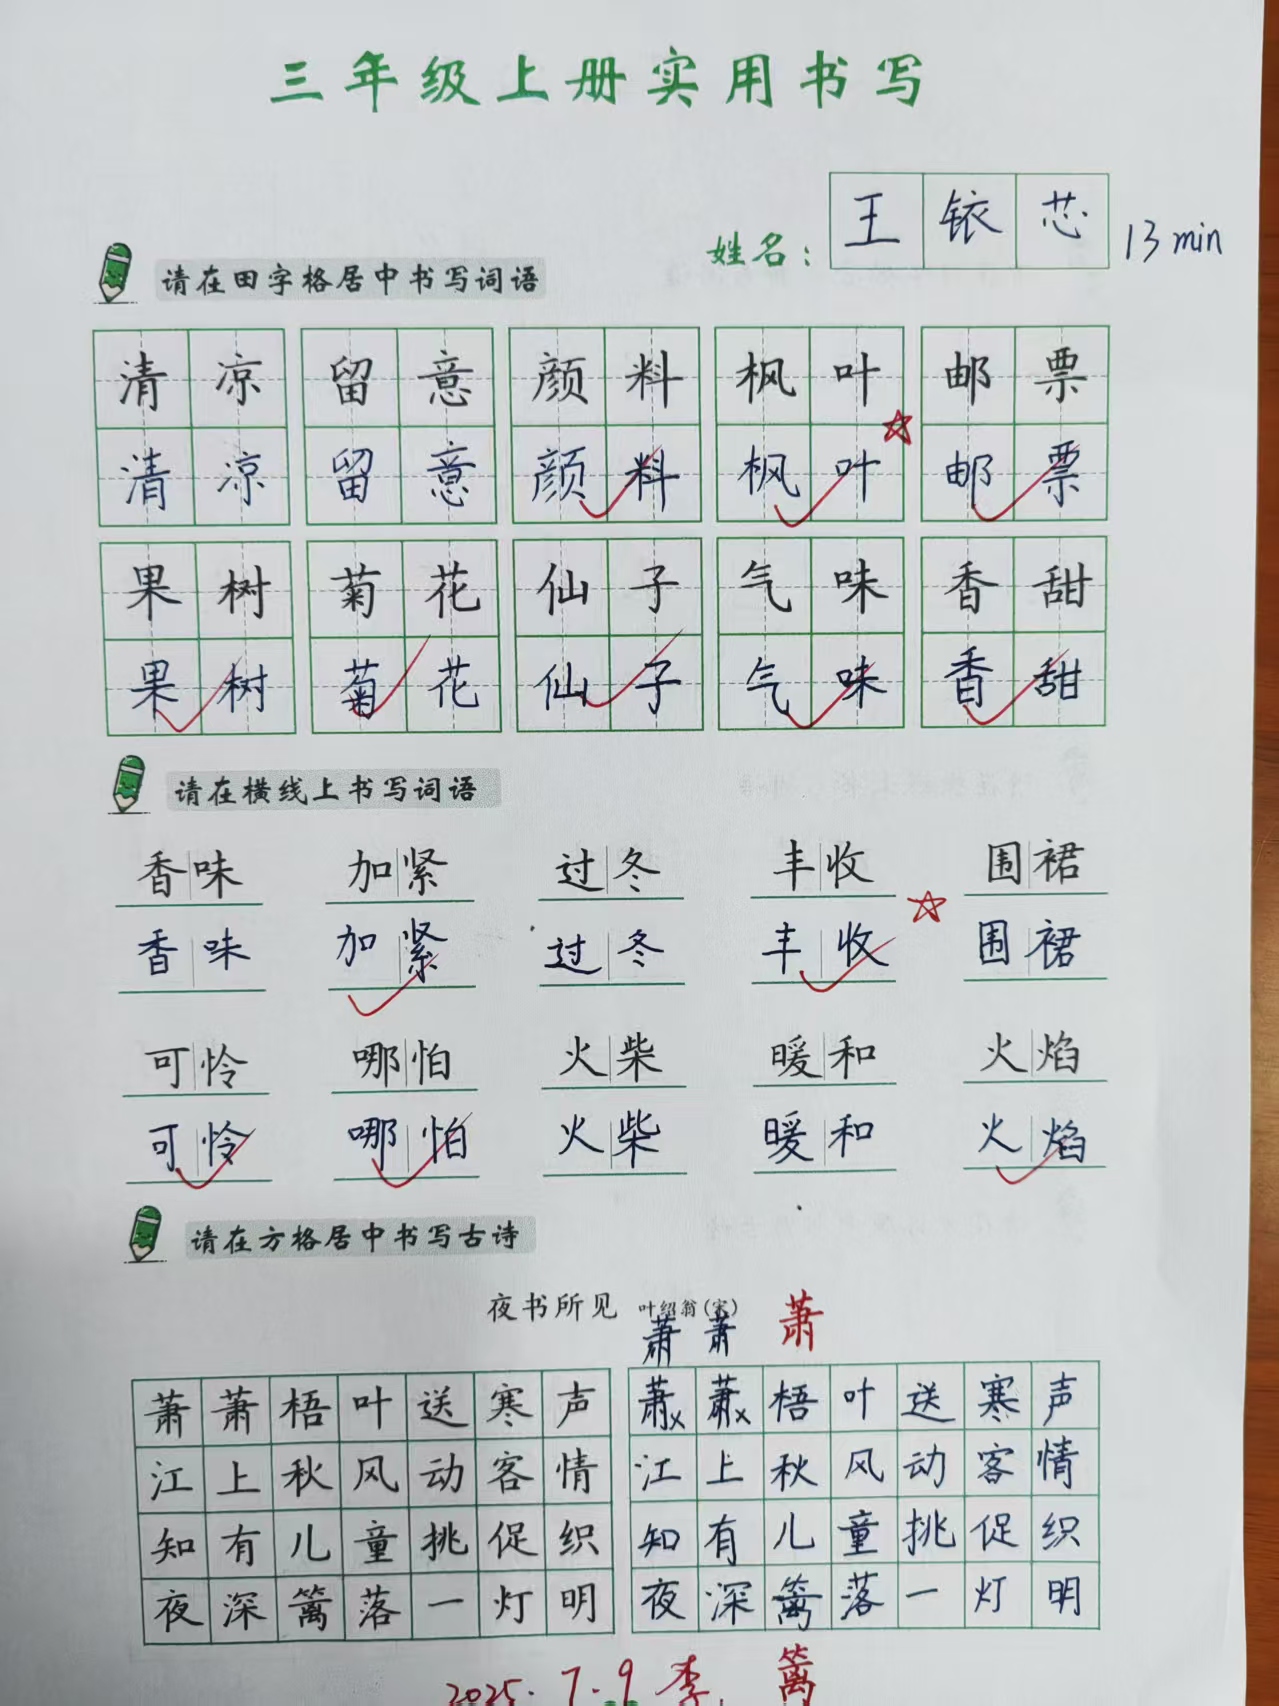 三年级上册实用书写
姓名：王铱芯 13min
请在田字格居中书写词语
清凉 留意 颜料 枫叶 邮票
清凉 留意 颜料 枫叶 邮票
果树 菊花 仙子 气味 香甜
果树 菊花 仙子 气味 香甜
请在横线上书写词语
香味 加紧 过冬 丰收 围裙
香味 加紧 过冬 丰收 围裙
可怜 哪怕 火柴 暖和 火焰
可怜 哪怕 火柴 暖和 火焰
请在方格居中书写古诗
夜书所见 叶绍翁(宋) 萧
萧 萧
萧萧梧叶送寒声 萧x萧x梧叶送寒声
江上秋风动客情 江上秋风动客情
知有儿童挑促织 知有儿童挑促织
夜深篱落一灯明 夜深篱落一灯明
2025.7.9 李 篱